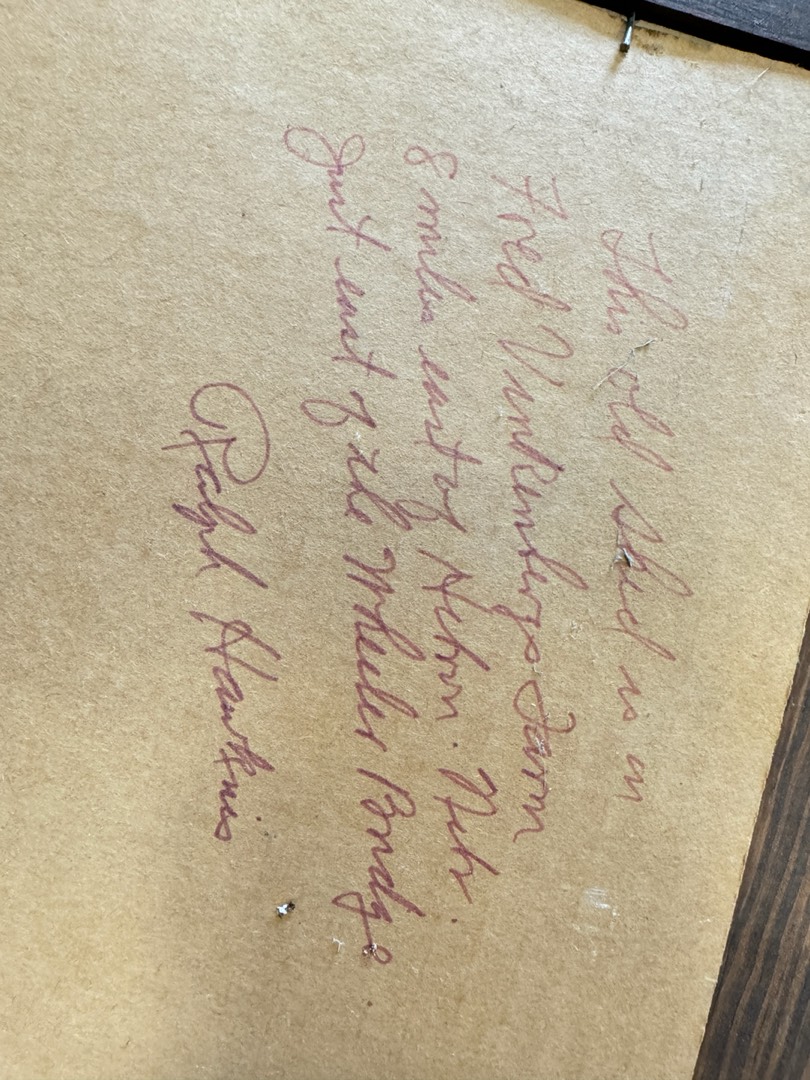 This old shed is on
Fred Vinkenbergs Farm
8 miles east of Hebron. Nebr.
Just east of the Wheeler Bridge
Ralph Hawkins